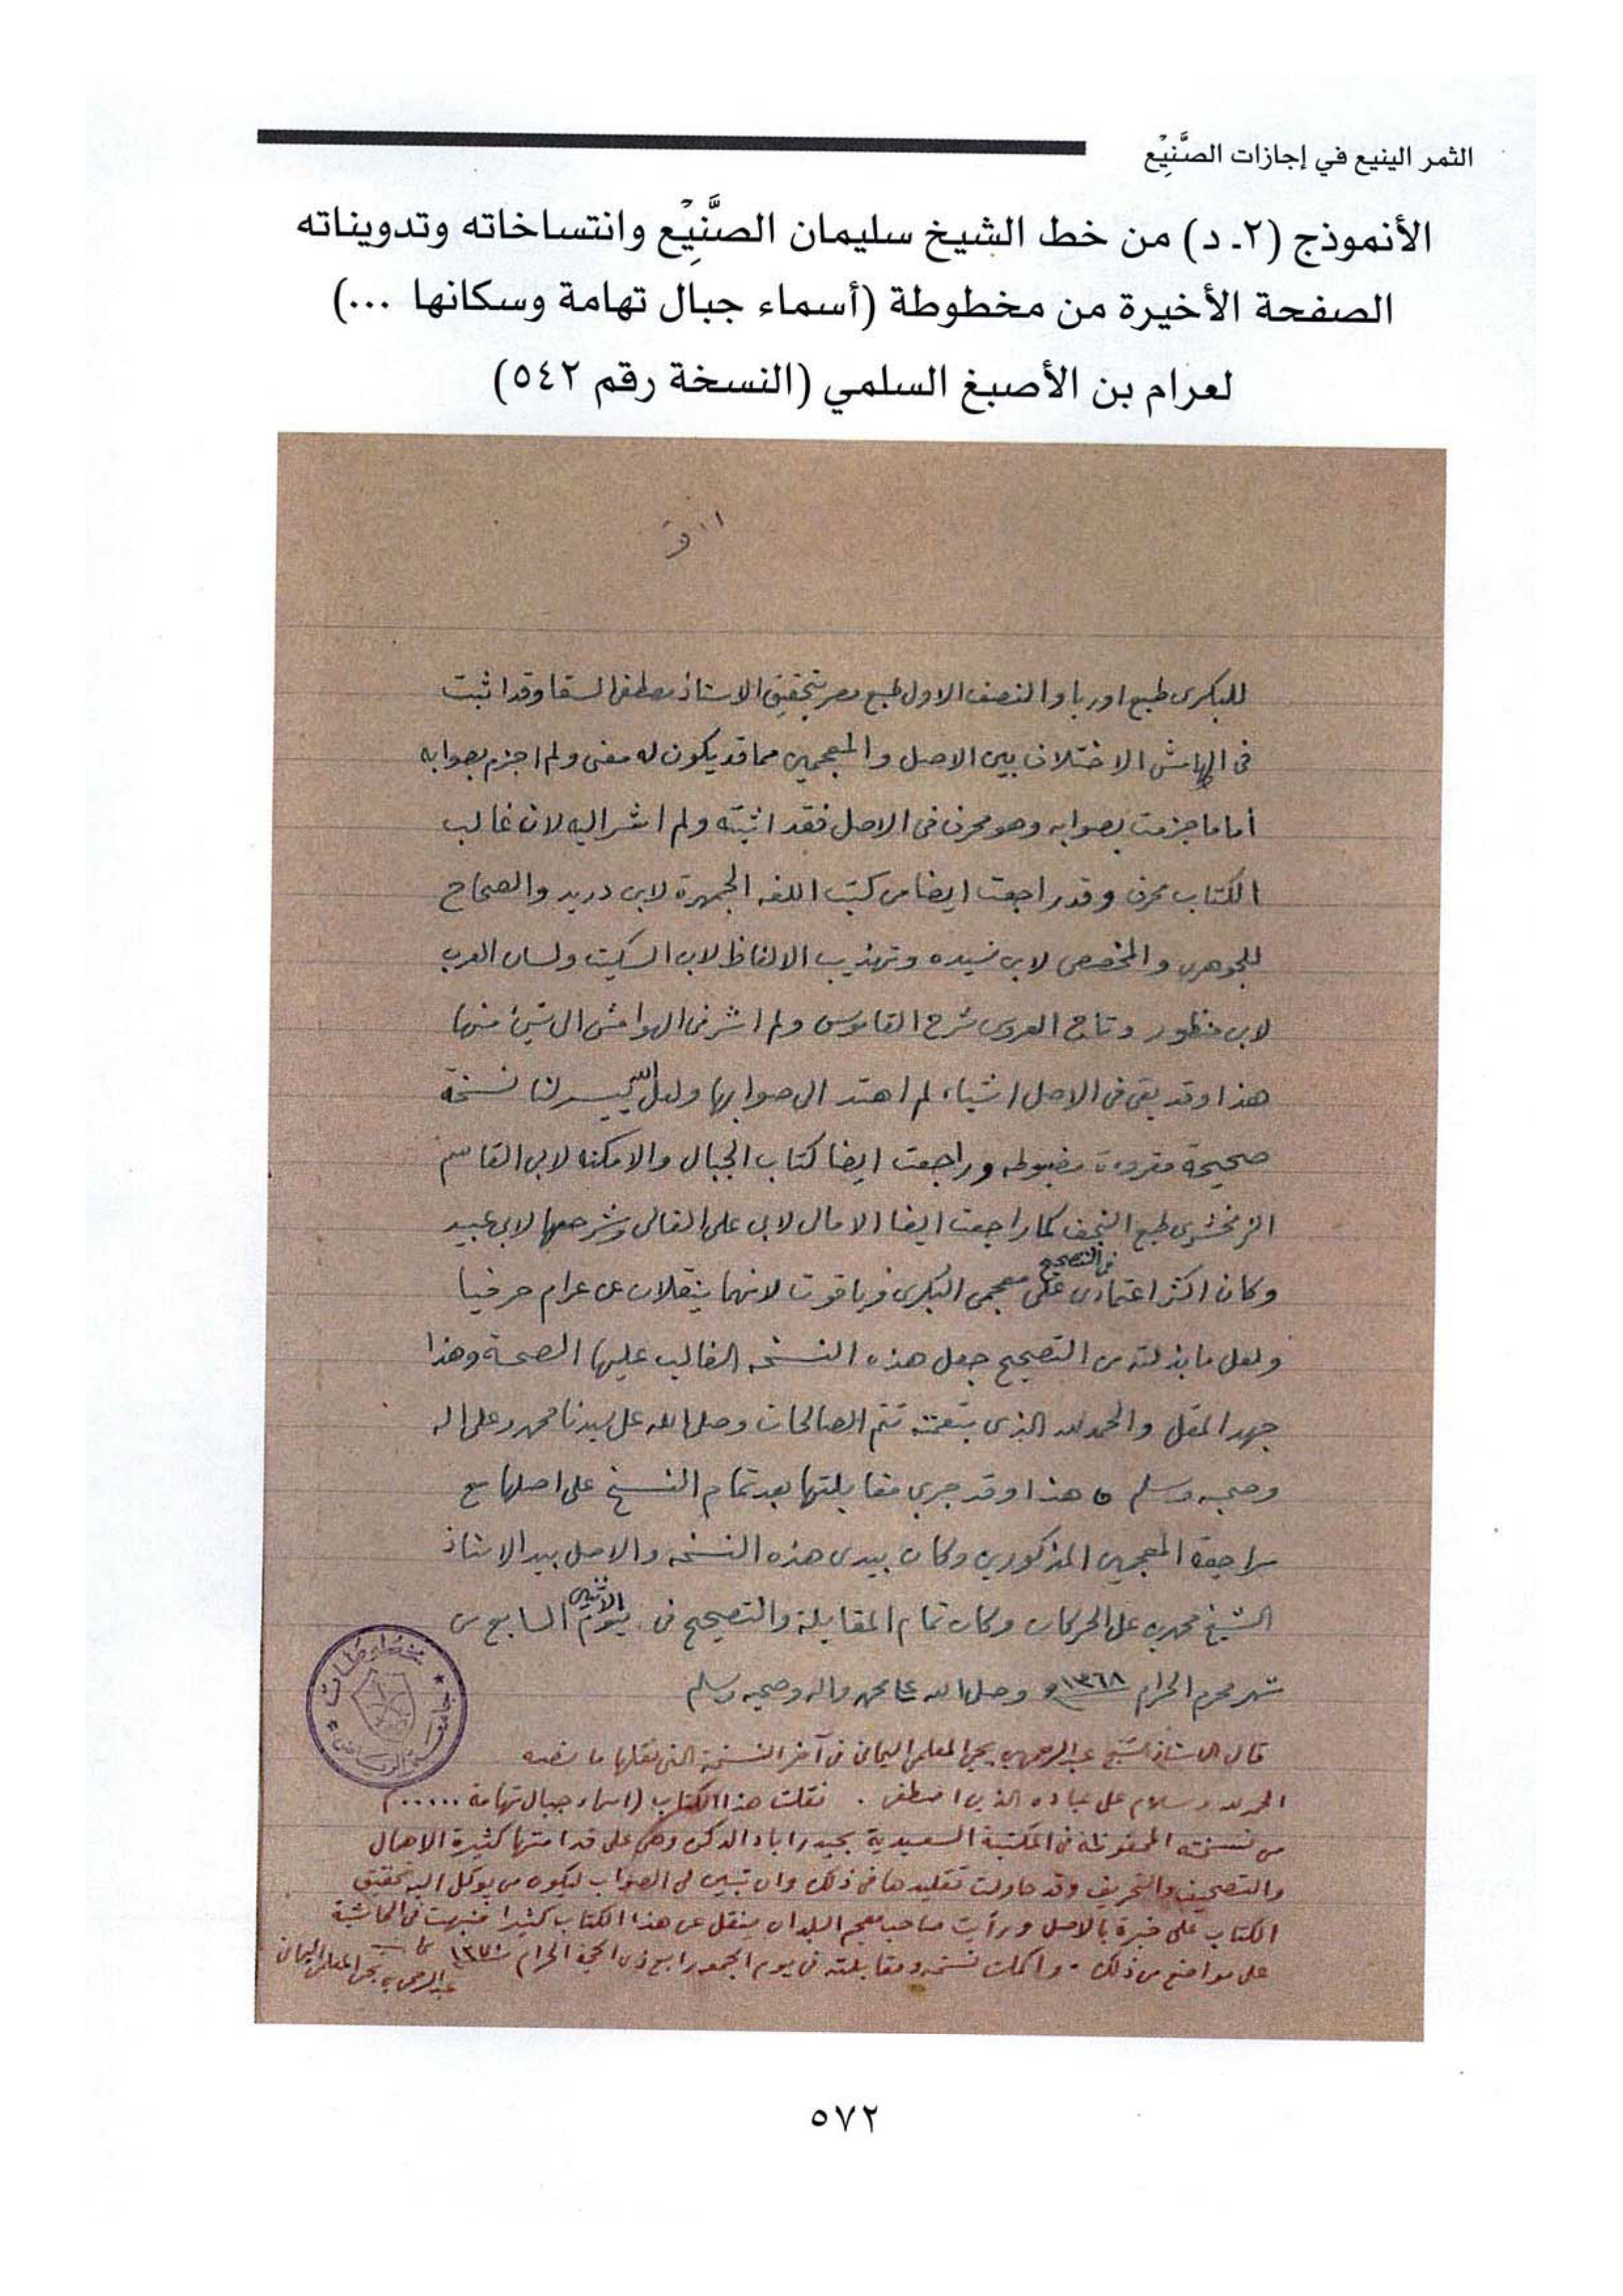 الثمر الينيع في إجازات الصَّنِيْع
الأنموذج (٢ـ د) من خط الشيخ سليمان الصَّنِيْع وانتساخاته وتدويناته
الصفحة الأخيرة من مخطوطة (أسماء جبال تهامة وسكانها ...)
لعرام بن الأصبغ السلمي (النسخة رقم ٥٤٢)
للبكرى طبع اوربا والنصف الاول طبع مصر بتحقيق الاستاذ مصطفى السقا وقد اثبت
فى الهامش الاختلاف بين الاصل والمعجمين مما قد يكون له معنى ولم اجزم بصوابه
أما ما جزمت بصوابه وهو محرف فى الاصل فقد اثبته ولم اشر اليه لان غالب
الكتاب محرف وقد راجعت ايضا من كتب اللغه الجمهرة لابن دريد والصحاح
للجوهرى والمخصص لابن سيده وتهذيب الالفاظ لابن السكيت ولسان العرب
لابن منظور وتاج العروس شرح القاموس ولم اشر فى الهوامش الى شئ منها
هذا وقد بقى فى الاصل اشياء لم اهتد الى صوابها ولعل الله ييسر لنا نسخة
صحيحة مقروءة مضبوطه وراجعت ايضا كتاب الجبال والامكنه لابى القاسم
الزمخشرى طبع النجف كما راجعت ايضا الامالى لابى على القالى وشرحها لابى عبيد
وكان اكثر اعتمادى فى التصحيح على معجمى البكرى وياقوت لانهما ينقلان عن عرام حرفيا
ولعل ما بذلته من التصحيح جعل هذه النسخه الغالب عليها الصحة وهذا
جهد المقل والحمد لله الذى بنعمته تتم الصالحات وصلى الله على سيدنا محمد وعلى اله
وصحبه وسلم ه هذا وقد جرى مقابلتها بعد تمام النسخ على اصلها مع
مراجعة المعجمين المذكورين وكان بيدى هذه النسخه والاصل بيد الاستاذ
الشيخ محمد بن على الحركان وكان تمام المقابلة والتصحيح فى يوم الاثنين السابع من
شهر محرم الحرام ١٣٦٨ وصلى الله على محمد واله وصحبه وسلم
قال الاستاذ الشيخ عبد الرحمن بن يحيى المعلمى اليمانى فى آخر النسخة التى نقلها ما نصه
الحمد لله وسلام على عباده الذين اصطفى . نقلت هذا الكتاب (اسماء جبال تهامة .....)
من نسخته المحفوظة فى المكتبة السعيدية بحيدراباد الدكن وهى على قدامتها كثيرة الاهمال
والتصحيف والتحريف وقد حاولت تقليدها فى ذلك وان تبين لى الصواب ليكون من يوكل اليه تحقيق
الكتاب على خبرة بالاصل ورأيت صاحب معجم البلدان ينقل عن هذا الكتاب كثيرا فنبهت فى الحاشية
على مواضع من ذلك . واكملت نسخه ومقابلته فى يوم الجمعه رابع ذى الحجة الحرام
عبد الرحمن بن يحيى المعلمى اليمانى
مخطوطات
جامعة الرياض
٥٧٢